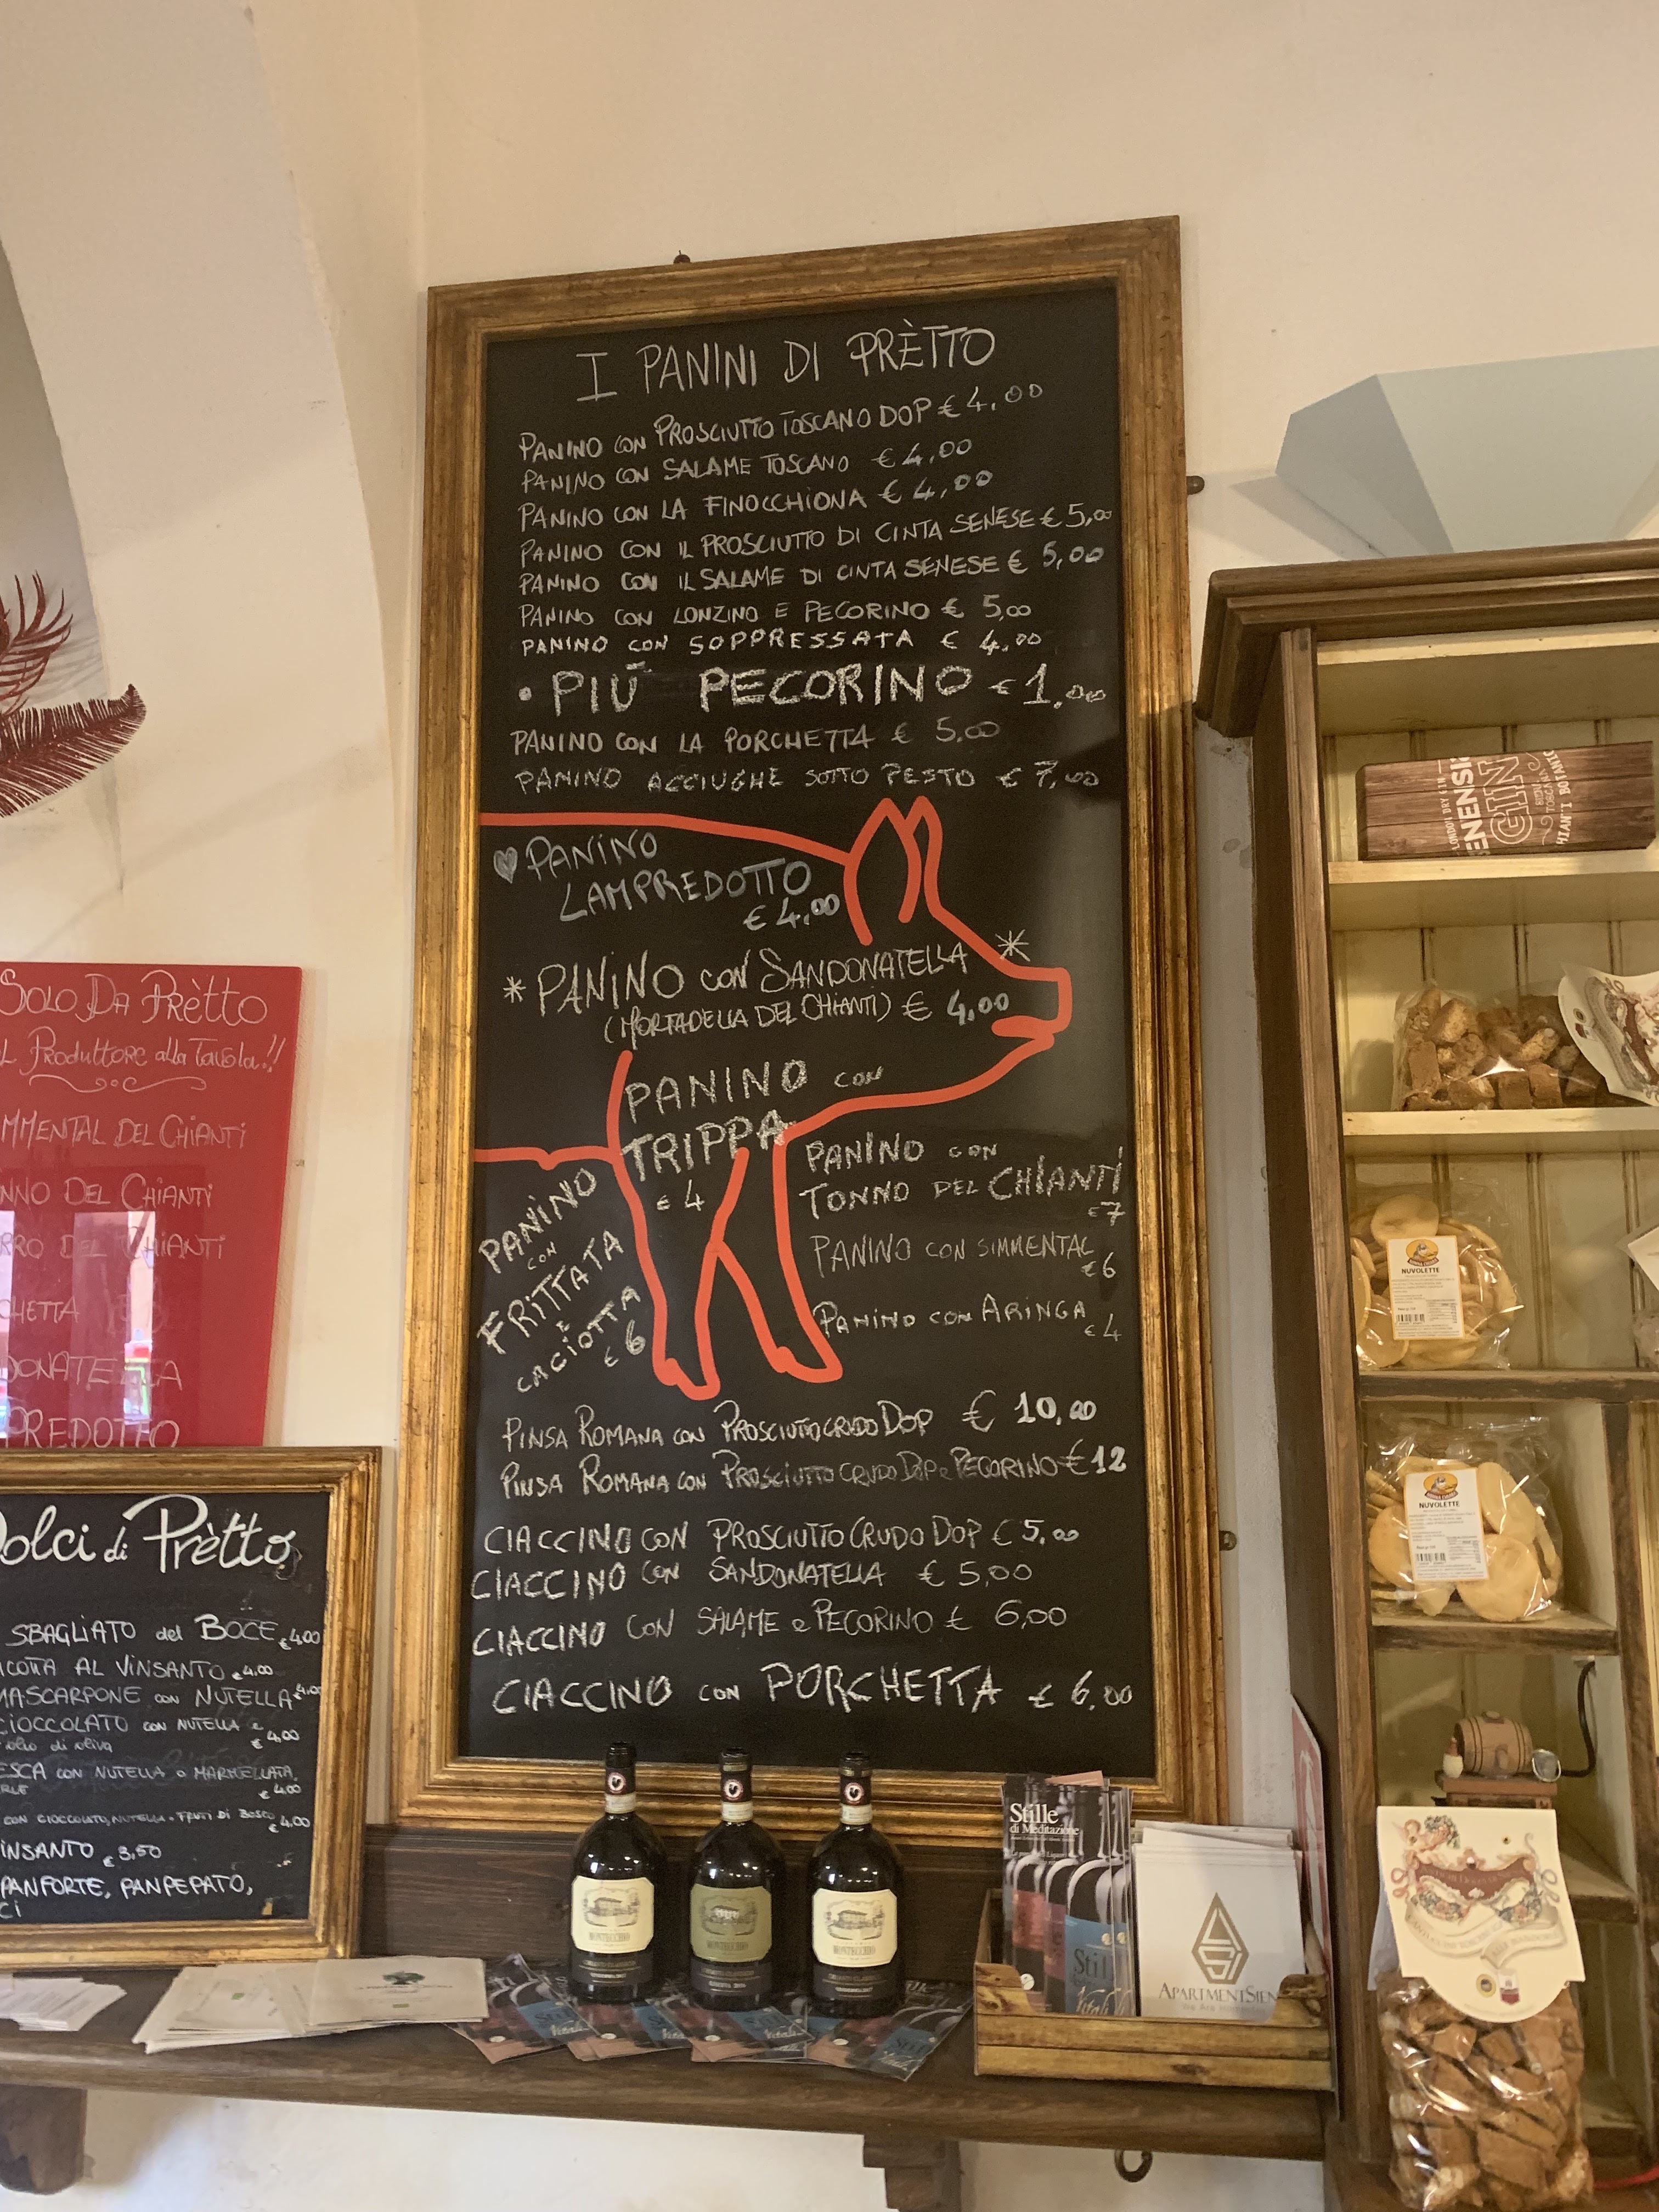 I PANINI DI PRÈTTO
PANINO CON PROSCIUTTO TOSCANO DOP € 4,00
PANINO CON SALAME TOSCANO € 4,00
PANINO CON LA FINOCCHIONA € 4,00
PANINO CON IL PROSCIUTTO DI CINTA SENESE € 5,00
PANINO CON IL SALAME DI CINTA SENESE € 5,00
PANINO CON LONZINO E PECORINO € 5,00
PANINO CON SOPPRESSATA € 4,00
• PIÙ PECORINO € 1,00
PANINO CON LA PORCHETTA € 5,00
PANINO ACCIUGHE SOTTO PESTO € 7,00
♥ PANINO
LAMPREDOTTO
€ 4,00
* PANINO CON SANDONATELLA *
(MORTADELLA DEL CHIANTI) € 4,00
PANINO CON
TRIPPA
€ 4
PANINO
CON
FRITTATA
E
CACIOTTA
€ 6
PANINO CON
TONNO DEL CHIANTI
€ 7
PANINO CON SIMMENTAL
€ 6
PANINO CON ARINGA
€ 4
PINSA ROMANA CON PROSCIUTTO CRUDO DOP € 10,00
PINSA ROMANA CON PROSCIUTTO CRUDO DOP e PECORINO € 12
CIACCINO CON PROSCIUTTO CRUDO DOP € 5,00
CIACCINO CON SANDONATELLA € 5,00
CIACCINO CON SALAME e PECORINO € 6,00
CIACCINO CON PORCHETTA € 6,00
SOLO DA PRÈTTO
L PRODUTTORE alla Tavola!!
MMENTAL DEL CHIANTI
NNO DEL CHIANTI
RRO DEL CHIANTI
CHETTA
DONATELLA
PREDOTTO
olci di Prètto
SBAGLIATO del BOCE € 4,00
ICOTTA AL VINSANTO € 4,00
MASCARPONE CON NUTELLA € 4,00
CIOCCOLATO CON NUTELLA e
olio di oliva € 4,00
ESCA CON NUTELLA o MARMELLATA
€ 4,00
CON CIOCCOLATO, NUTELLA + FRUTTI DI BOSCO
€ 4,00
INSANTO € 3,50
PANFORTE, PANPEPATO,
CI
LONDON DRY GIN
ENENSI
GIN
NUVOLETTE
NUVOLETTE
MONTECCHIO
MONTECCHIO
MONTECCHIO
Stille
di Meditazione
APARTMENTSIEN